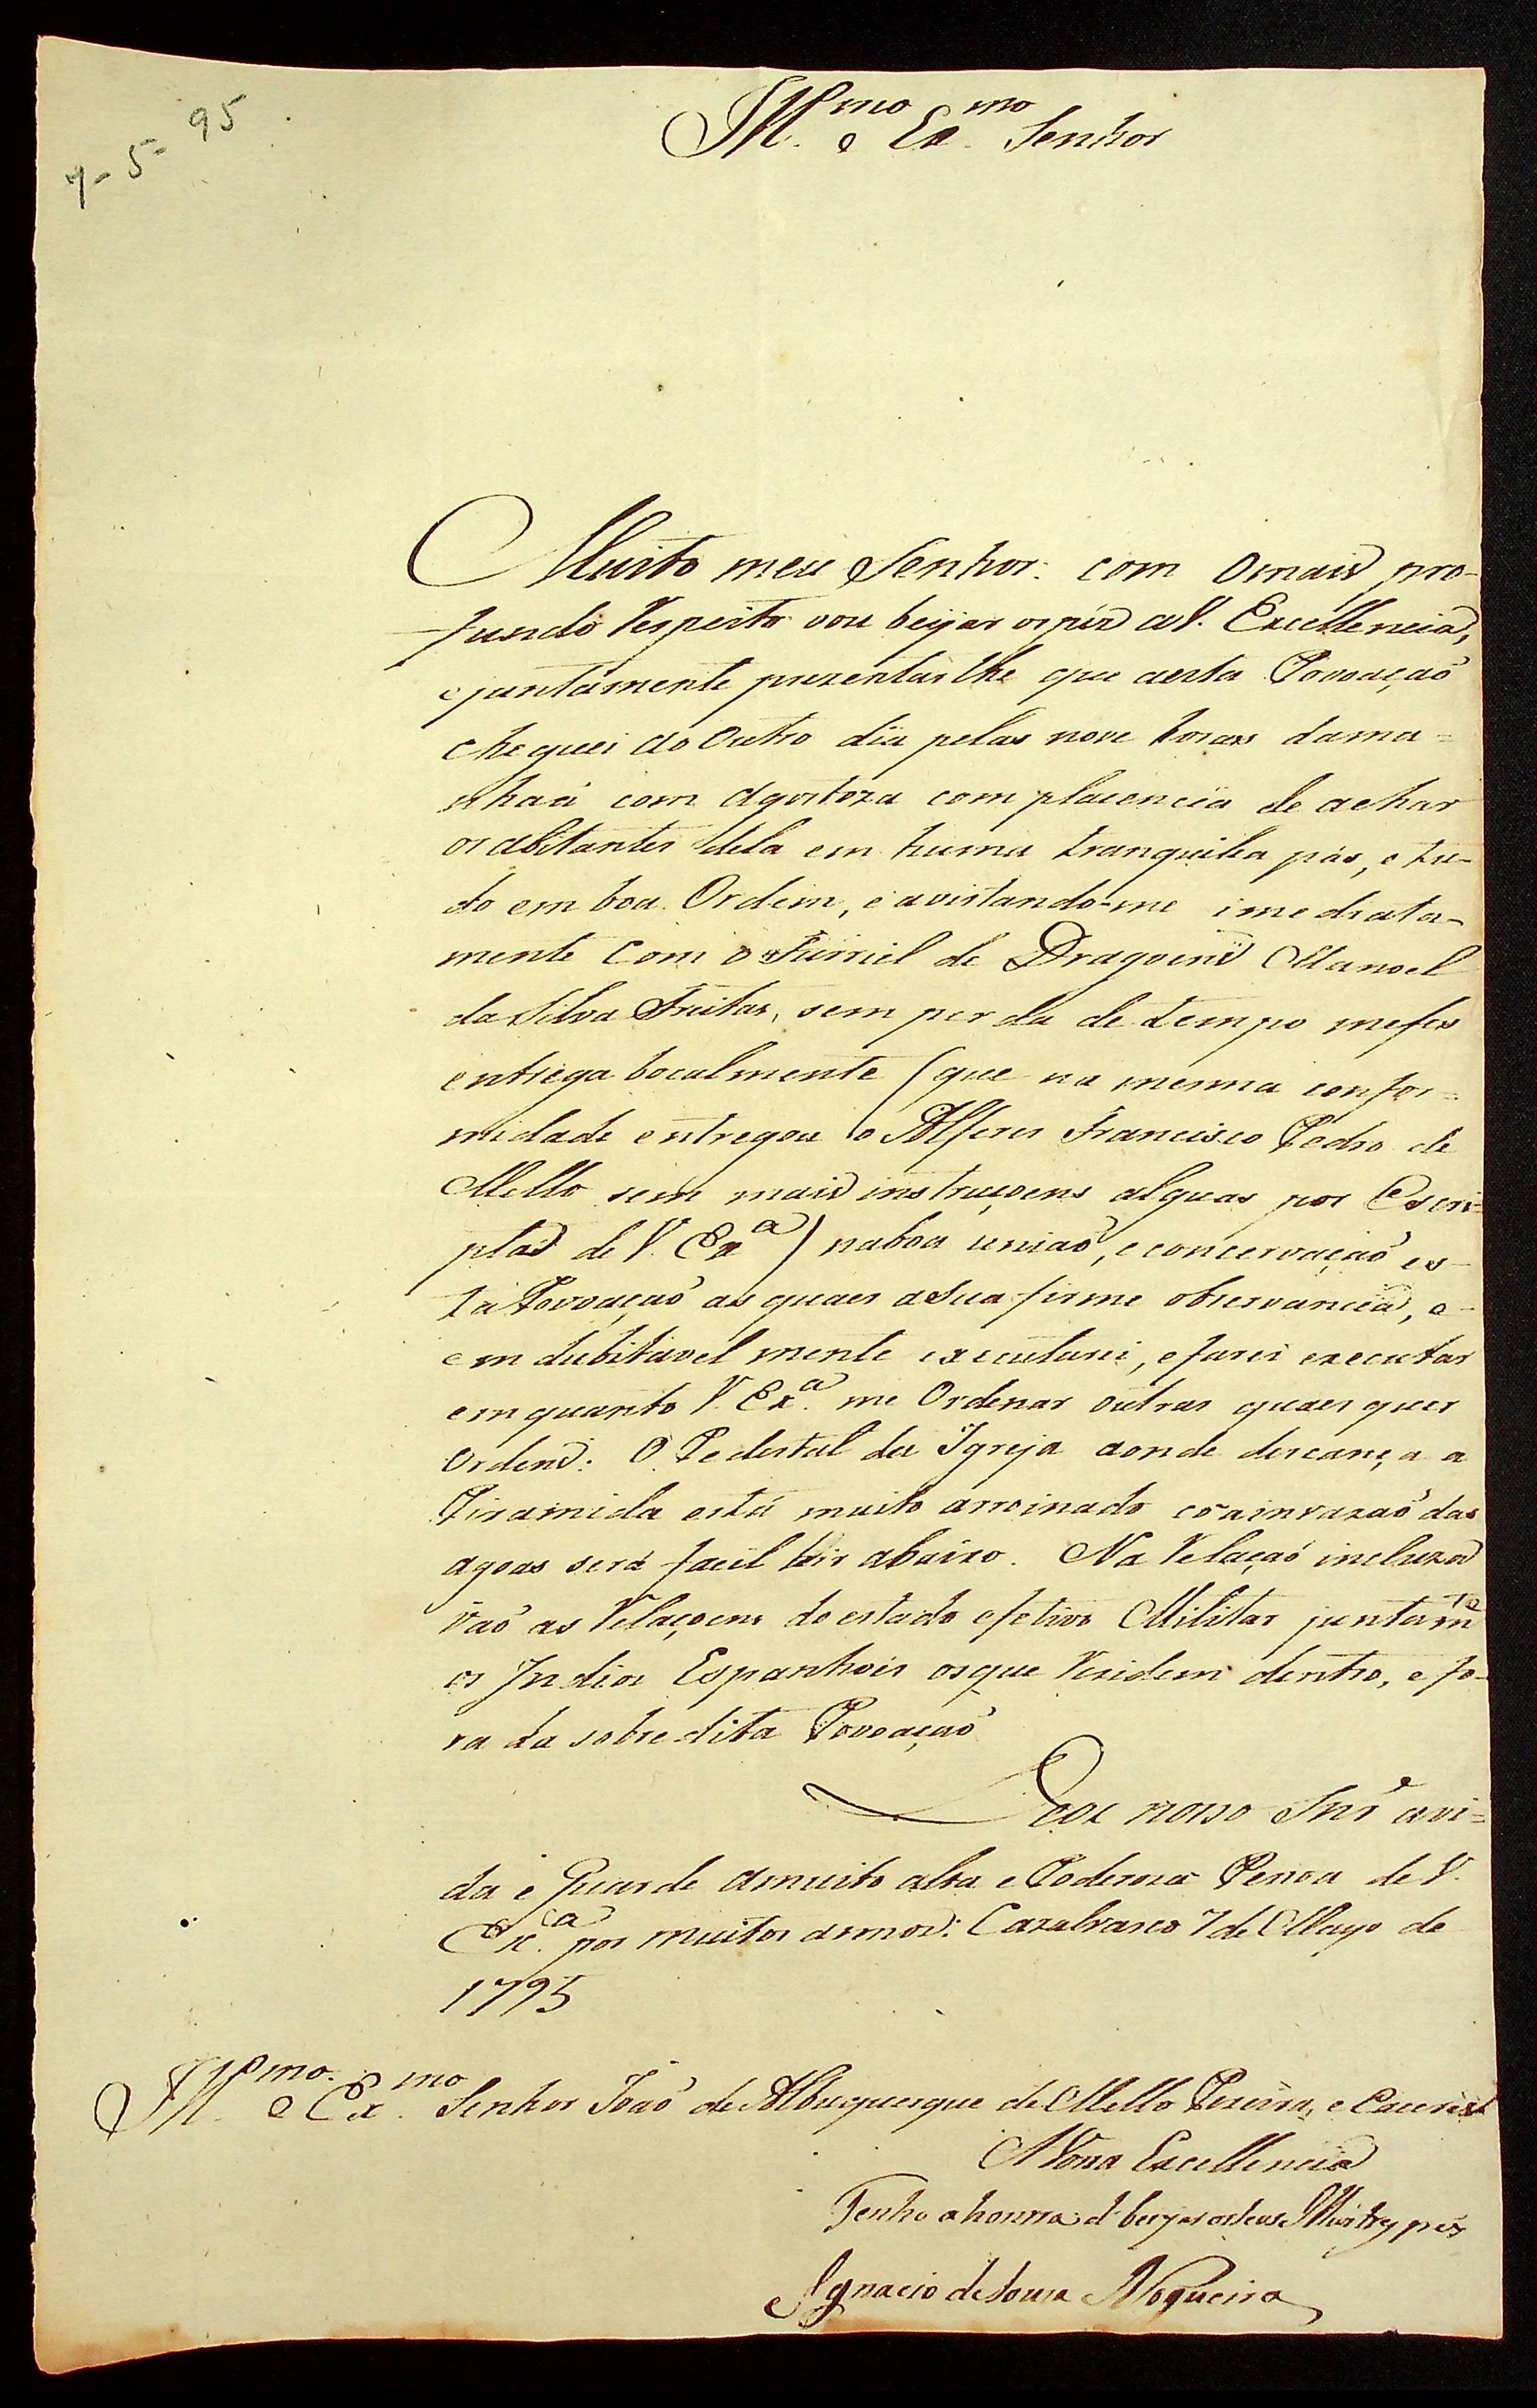 7-5-95
Ill.mo e Ex.mo Senhor
Muito meu Senhor: com omais pro-
fundo Respeito vou beijar ospés aV. Excellencia,
ejuntamente prezentarlhe que aesta Povoaçaõ
cheguei ao outro dia pelas nove horas dama=
nhaã com agostoza complacencia de achar
osabitantes dela em huma tranquila pás, e tu-
do em boa Ordem, e avistando-me imediata-
mente Com o Furriel de Dragoens Manoel
da Silva Freitas, sem perda de tempo mefes
entrega bocalmente (que na mesma confor=
midade entregou o Alferes Francisco Pedro de
Mello sem mais instruçoens alguas por Escri=
ptas de V. Ex.a) naboa uniaõ, e concervaçaõ es-
ta Povoaçaõ as quaes asua firme observancia, e
emdubitavel mente executarei, efarei executar
emquanto V. Ex.a me Ordenar outras quaes quer
Ordens: O Pedestal da Igreja aonde descança a
Piramida está muito arroinado coainvazaõ das
agoas será facil hir abaixo. Na Relaçaõ incluza
vaõ as Relaçoens do estado efetivo Militar juntamte
os Indios Espanhois osque Rezidem dentro, e fo-
ra da sobredita Povoaçaõ
Deos noso Snr avi=
da e Guarde amuito alta e Poderoza Pesoa de V.
Exc.a por muitos annos: Cazalvasco 7 de Mayo de
1795
Ill.mo e Ex.mo Senhor Joaõ de Albuquerque de Mello Pereira, e Caceres
A Vosa Excellencia
Tenho ahonrra d beijar osseus Illustres pés
Ignacio deSousa Nogueira